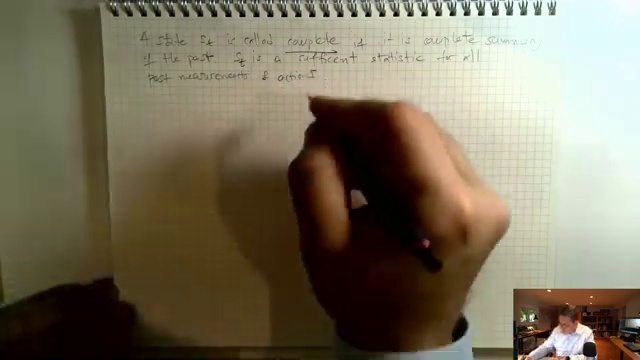 A state St is called complete if it is complete summary
of the past St is a sufficent statistic for all
past measurements & actions.